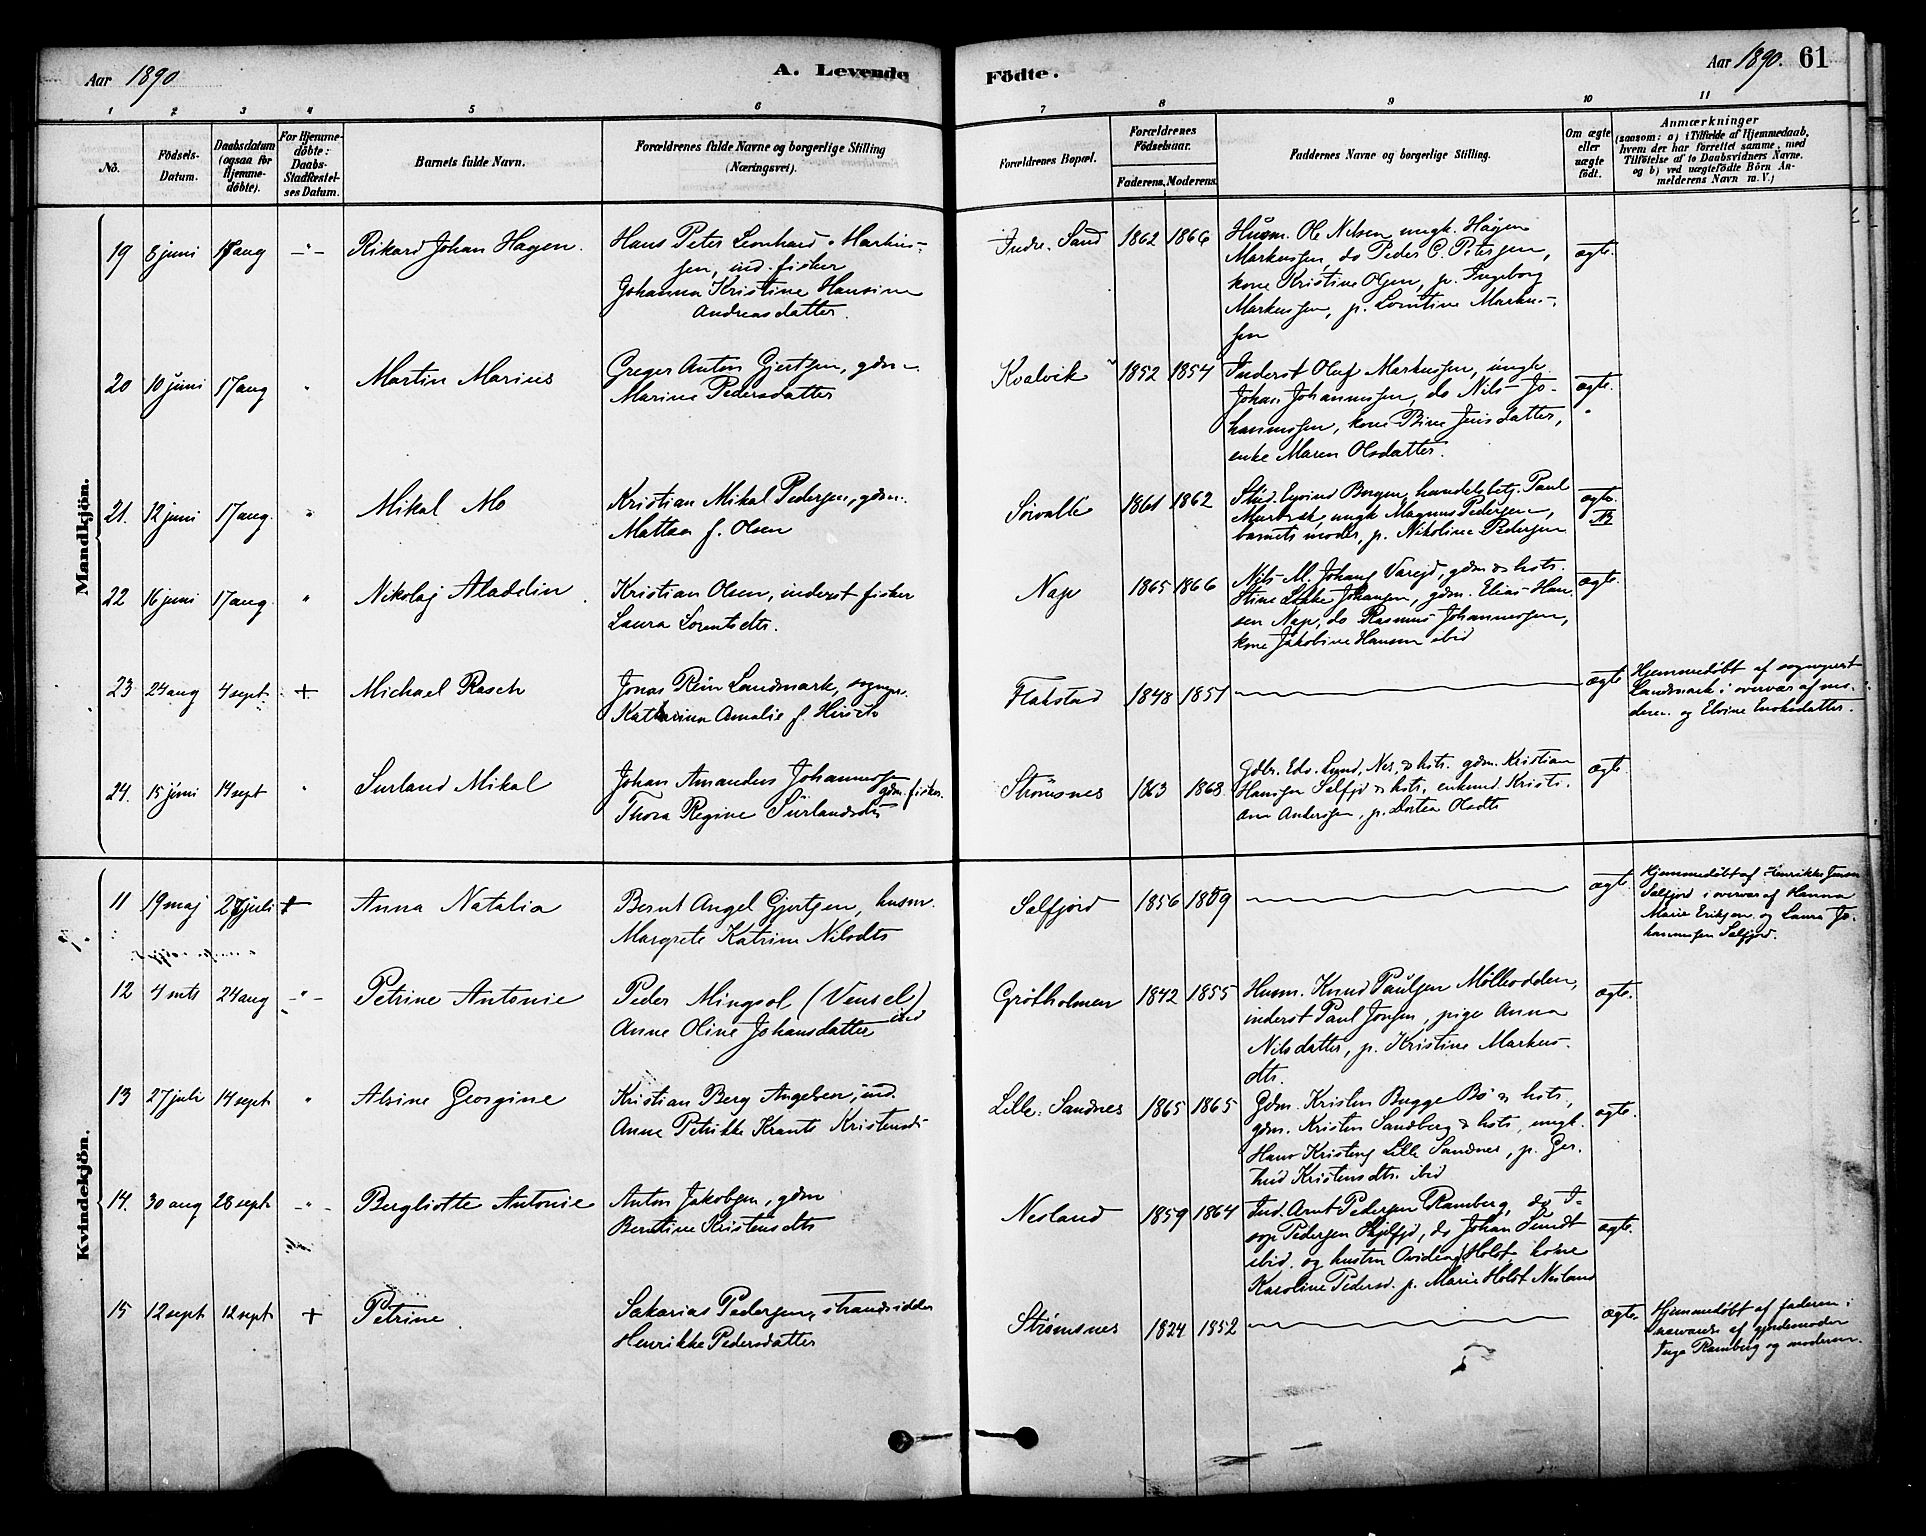 Aar 1890
A. Levende
Födte.
Aar 1890. 61
1 2 3 4 5 6 7 8 9 10 11
No.
Födsels-
Datum.
Daabsdatum
(ogsaa for
Hjemme-
döbte).
For Hjemme-
döbte:
Daabs-
Stadfæstel-
ses Datum.
Barnets fulde Navn.
Forældrenes fulde Navne og borgerlige Stilling
(Næringsvei).
Forældrenes Bopæl.
Forældrenes
Födselsaar.
Faderens. Moderens.
Faddernes Navne og borgerlige Stilling.
Om ægte
eller
uægte
födt.
Anmærkninger
(saasom: a) i Tilfælde af Hjemmedaab,
hvem der har forrettet samme, med
Tilföielse af to Daabsvidners Navne.
og b) ved uægtefödte Börn An-
melderens Navn m. V.)
Mandkjön.
19 8 juni 17 aug -"- Rikard Johan Hagen.
Hans Peter Leonhard Markus-
sen, ind. fisker
Johanna Kristine Hansine
Andreasdatter.
Indre Sand 1862 1866
Husm. Ole Nilsen ungk. Hagen
Markussen, do Peder C. Petersen,
kone Kristine Olsen, p. Ingeborg
Markussen, p. Lorntine Markus-
sen
ægte.
20 10 juni 17 aug " Martin Marius
Greger Anton Gjertsen, gdm.
Marine Pedersdatter
Kvalvik 1852 1854
Inderst Oluf Markussen, ungk.
Johan Johannessen, do Nils Jo-
hannessen, kone Bine Jensdatter,
enke Maren Olsdatter.
ægte.
21. 12 juni 17 aug. " Mikal Mo
Kristian Mikal Pedersen, gdm.
Mattea f. Olsen
1861 1862
Stud. Eyvind Borgen, handelsbetj. Paul
ungk Magnus Pedersen,
barnets moder, p. Nikoline Pedersen
ægte.
22 16 juni 17 aug. " Nikolaj Aladdin
Kristian Olsen, inderst fisker
Laura Lorentsdtr.
Nap 1865 1866
Nils M. Johans Varejd, gdm & hstr.
Stine Johansen, gdm. Elias Han-
sen Nap, do Rasmus Johannessen,
kone Jakobine Hansen ibid
ægte.
23 24 aug 4 sept + Michael Rasch
Jonas Rein Landmark, sognepr.
Katharina Amalie f. Hirsch
Flakstad 1848 1851
ægte
Hjemmedøbt af sognepræst
Landmark i overvær af mo-
deren og Elvine Enoksdatter.
24. 15 juni 14 sept " Surland Mikal
Johan Amandus Johannessen
gdm. fisker.
Thora Regine Surlandsdtr
Strömsnes 1863 1868.
Gdbr. Edv. Lund, Nes, & hstr. gdm. Kristian
Hansen Selfjd & hstr. enkemd. Kristi-
an Andersen, p. Dortea Olsdtr
ægte.
Kvindekjön.
11 19 maj 27 juli + Anna Natalia
Bernt Angel Gjertsen, husm.
Margrete Katrine Nilsdtr
Selfjord 1856 1859
ægte.
Hjemmedøbt af Henrikke Jensen
Selfjord i overvær af Hanna
Marie Eriksen og Laura Jo-
hannessen Selfjord.
12 4 mts 24 aug -"- Petrine Antonie
Peder Mingsol (Vensel)
ind
Anne Oline Johansdatter
Grötholmen 1842 1855
Husm. Knud Paulsen Mölleodden,
inderst Paul Jonsen, pige Anna
Nilsdatter, p. Kristine Markus-
dtr.
ægte.
13 27 juli 14 sept " Alvine Georgine
Kristian Berg Angelsen, ind.
Anne Petrikke Krants Kristensdtr
Lille Sandnes 1865 1865
Gdm. Kristen Bugge Bö & hstr.,
gdm. Kristen Sandberg & hstr, ungk.
Hans Kristens Lille Sandnes, p. Ger-
trud Kristensdtr. ibid
ægte.
14. 30 aug 28 sept. -"- Bergliotte Antonie
Anton Jakobsen, gdm
Berntine Kristensdtr
Nesland 1859 1864
Ind. Arnt Pedersen Ramberg, do I-
sap Pedersen Skjelfjd, do Johan Sundt
ibid. og hustru Ovidea f. Holst kone
Karoline Pedersd. p. Marie Holst Nesland
ægte.
15 12 sept 12 sept + Petrine
Sakarias Pedersen, strandsidder
Henrikke Pedersdatter
Strömsnes 1824 1852
ægte.
Hjemmedøbt af faderen i
nærværelse af gjordemoder
Inga Ramberg og moderen.